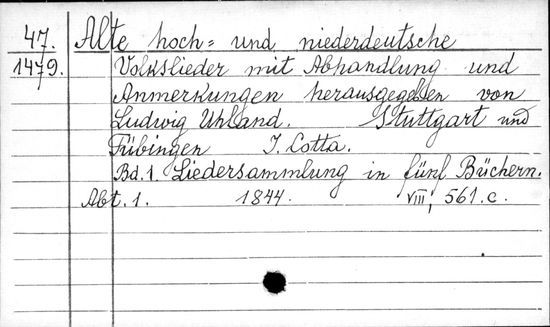 47. Alte hoch= und niederdeutsche
1479. Volkslieder mit Abhandlung und
Anmerkungen herausgegeben von
Ludwig Uhland. Stuttgart und
Tübingen J. Cotta.
Bd. 1. Liedersammlung in fünf Büchern.
Abt. 1. 1844. VIII, 561. c.